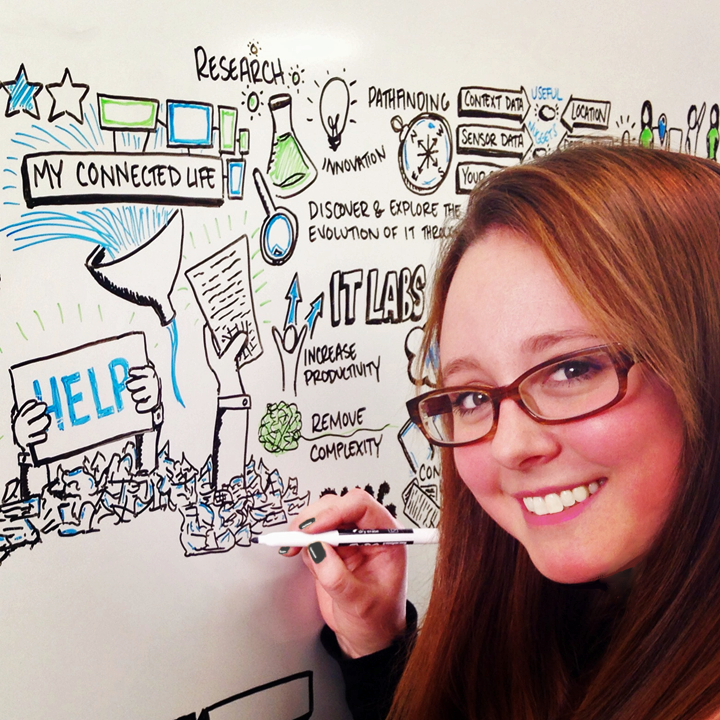 RESEARCH
MY CONNECTED LIFE
INNOVATION
PATHFINDING
CONTEXT DATA
SENSOR DATA
USEFUL
NUGGETS
LOCATION
DISCOVER & EXPLORE THE
EVOLUTION OF IT
IT LABS
INCREASE
PRODUCTIVITY
REMOVE
COMPLEXITY
HELP